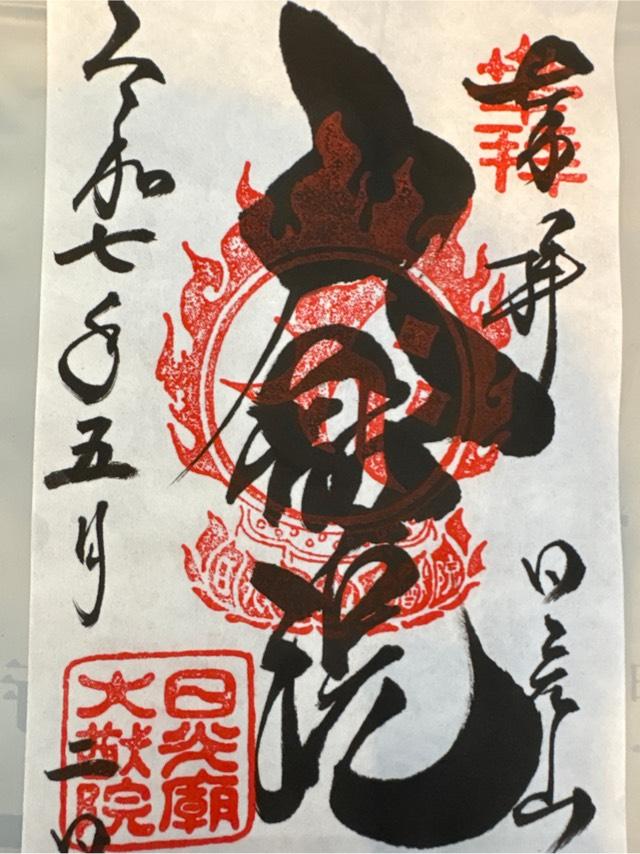 奉拝
日光山
大猷院
令和七年五月二日
日光廟
大猷院